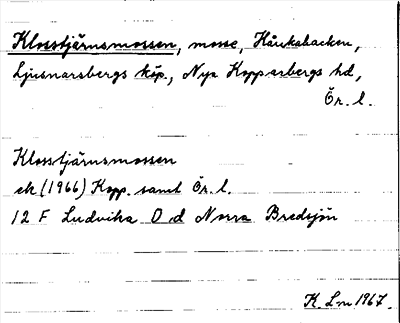 Klosstjärnsmossen, mosse, Håukabacken,
Ljusnarsbergs köp., Nya Kopparbergs hd,
Ör. l.
Klosstjärnsmossen
ek (1966) Kopp. samt Ör. l.
12 F Ludvika O d Norra Bredsjön
K. Lm 1967.